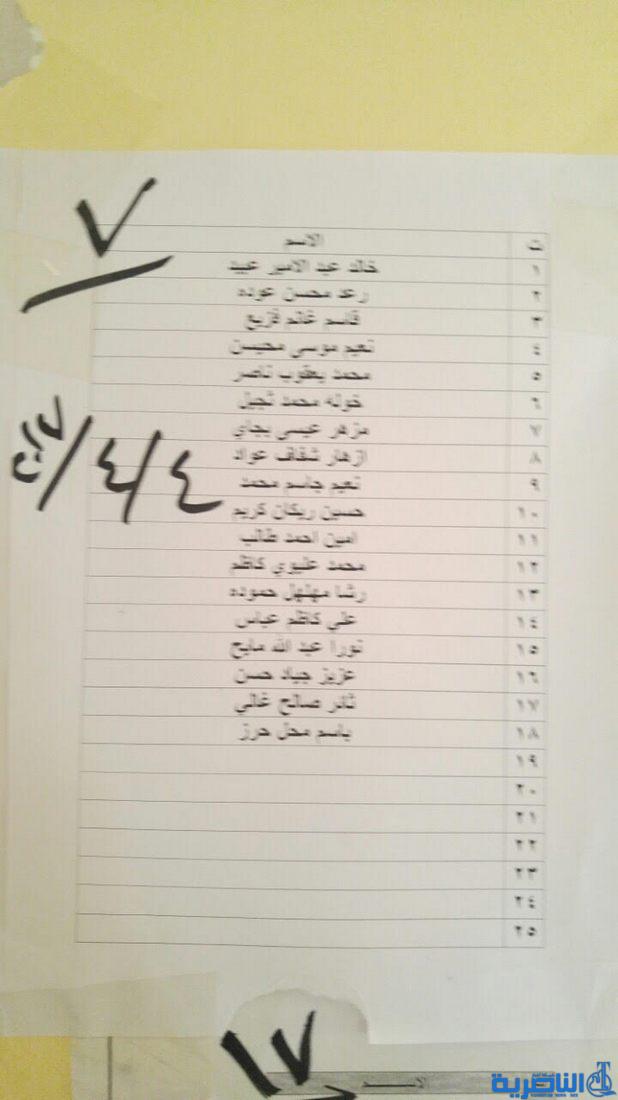 ٧
ت الاسم
١ خالد عبد الامير عبيد
٢ رعد محسن عوده
٣ قاسم غانم فزيع
٤ نعيم موسى محيسن
٥ محمد يعقوب ناصر
٦ خوله محمد ثجيل
٧ مزهر عيسى بجاي
٨ ازهار شفاف عواد
٩ نعيم جاسم محمد
١٠ حسين ريكان كريم
١١ امين احمد طالب
١٢ محمد عليوي كاظم
١٣ رشا مهلهل حموده
١٤ علي كاظم عباس
١٥ نورا عبد الله مايح
١٦ عزيز جياد حسن
١٧ ثائر صالح غالي
١٨ باسم محل حرز
١٩
٢٠
٢١
٢٢
٢٣
٢٤
٢٥
٤/٤/
١٧
الاســـم
الناصرية